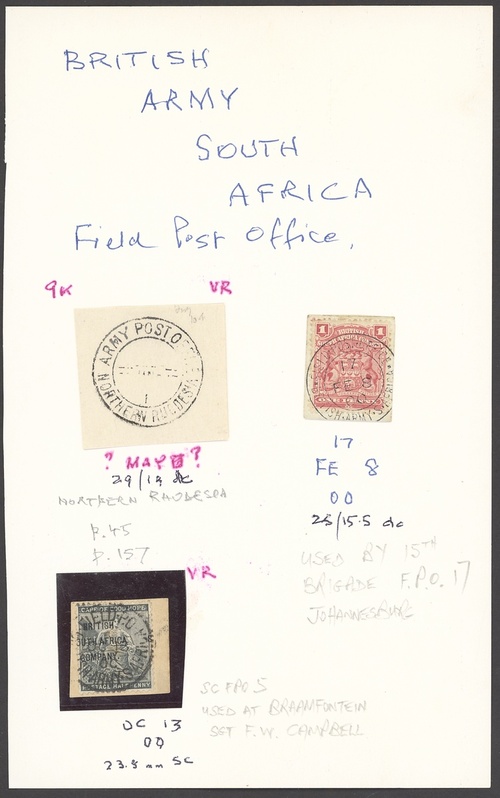 BRITISH
ARMY
SOUTH
AFRICA
Field Post Office,
9K
VR
ARMY POST O
1
NORTHERN RHODESIA
1
BRITISH
1
17
FE 8
ARMY S. AFRICA
? MAY ?
29/19 dc
NORTHERN RHODESIA
p.45
p.157
17
FE 8
00
25/15.5 dc
USED BY 15TH
BRIGADE F.P.O. 17
JOHANNESBURG
VR
CAPE OF GOOD HOPE
FIELD P.O.
BRITISH
SOUTH AFRICA
COMPANY.
POSTAGE HALF PENNY
SC FPO 5
USED AT BRAAMFONTEIN
SGT F.W. CAMPBELL
OC 13
00
23.5 mm SC